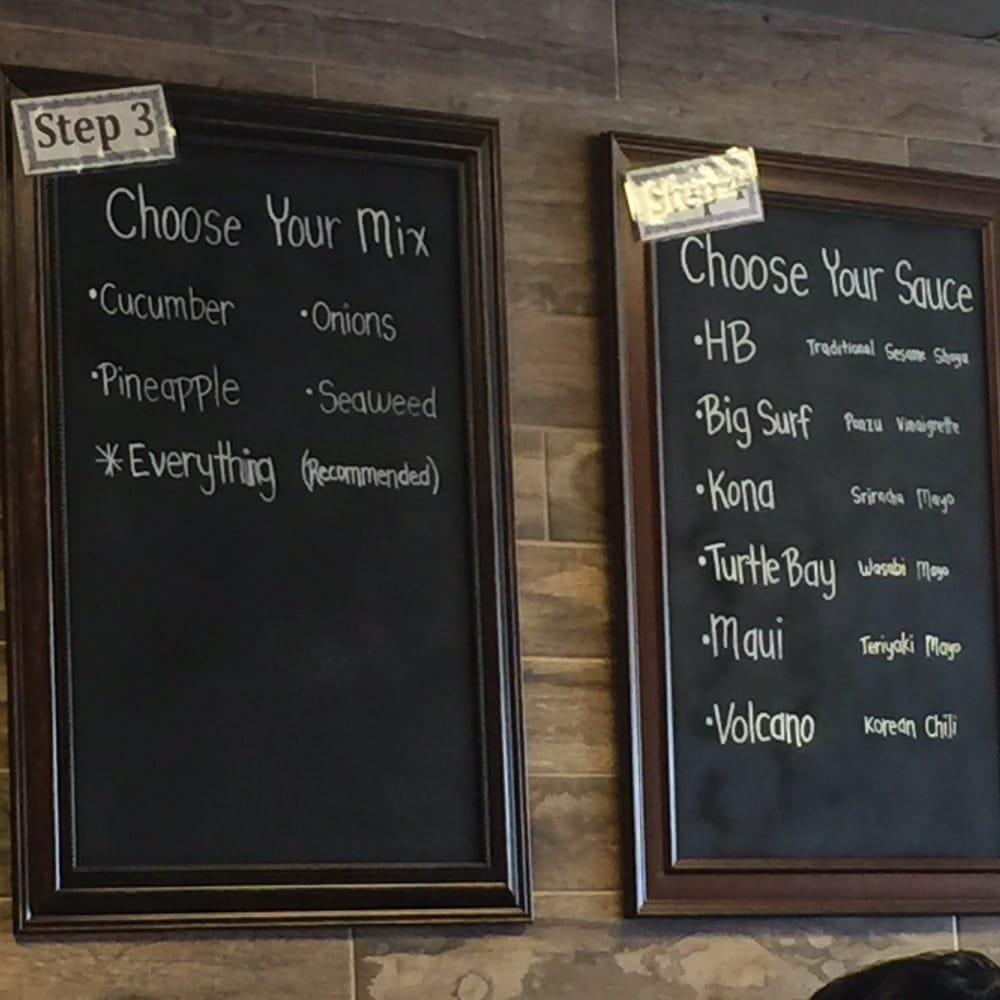 Step 3
Choose Your Mix
•Cucumber •Onions
•Pineapple •Seaweed
*Everything (Recommended)
Step 4
Choose Your Sauce
•HB Traditional Sesame Shoyu
•Big Surf Ponzu Vinaigrette
•Kona Sriracha Mayo
•Turtle Bay Wasabi Mayo
•Maui Teriyaki Mayo
•Volcano Korean Chili